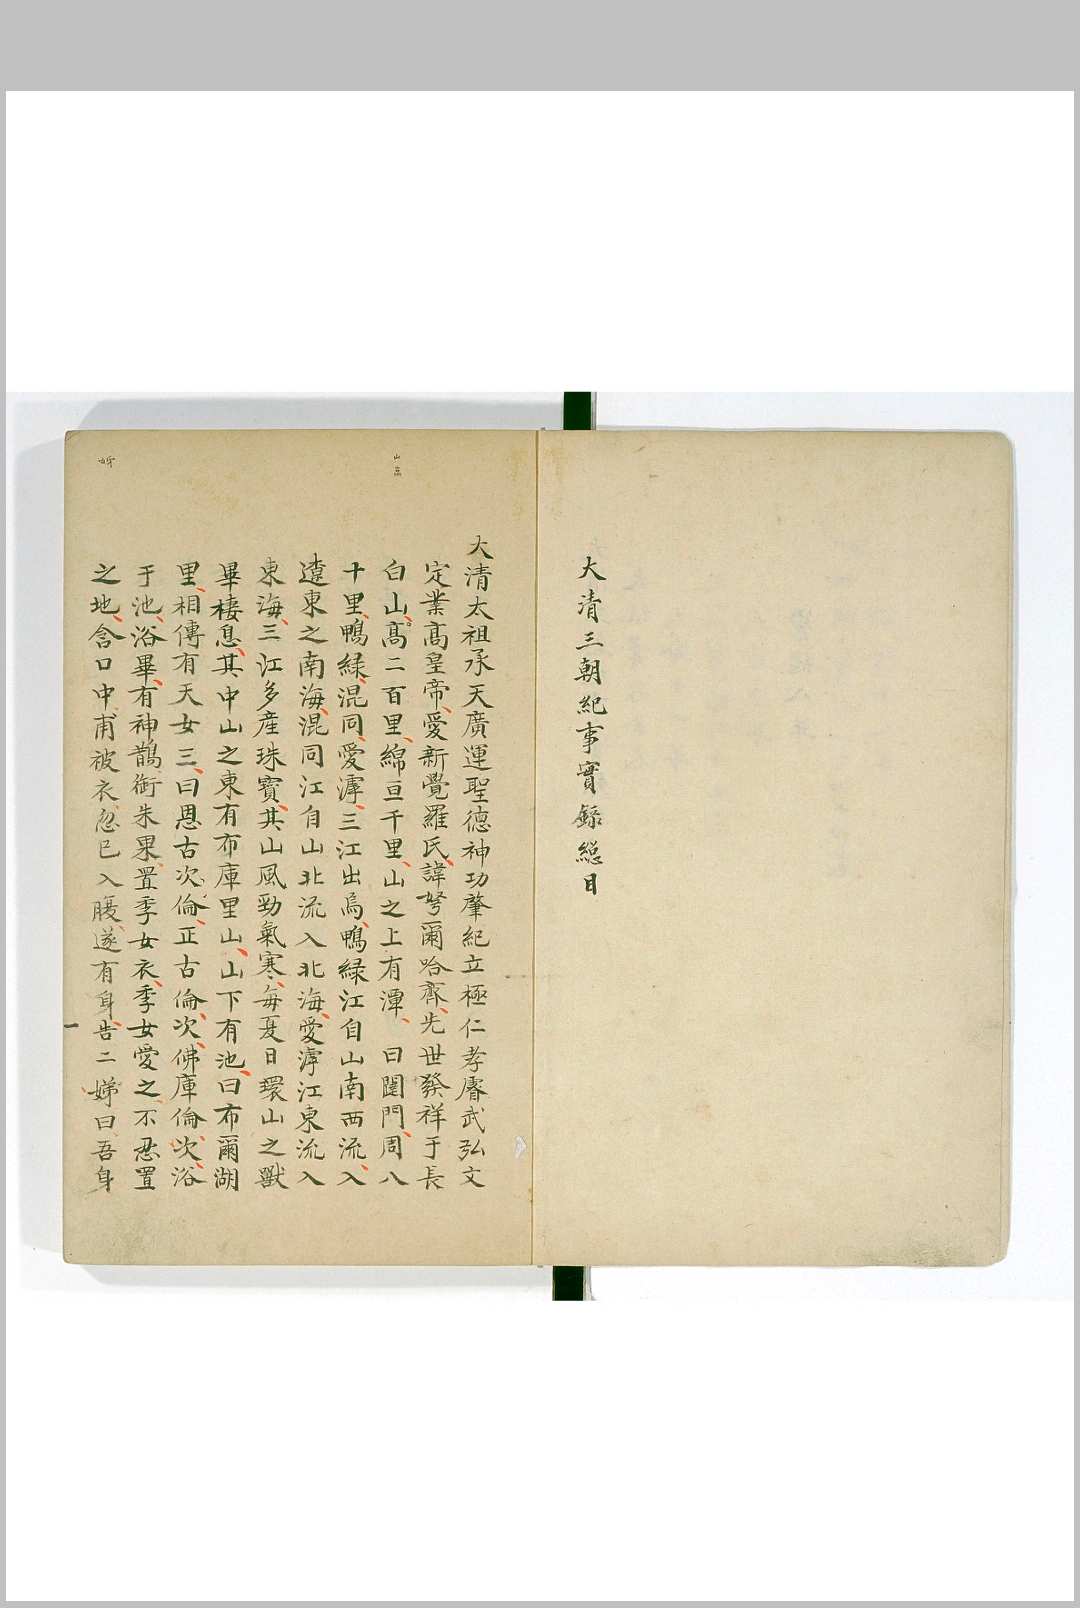 大清三朝紀事實錄總目
大清太祖承天廣運聖德神功肇紀立極仁孝睿武弘文
定業高皇帝愛新覺羅氏諱弩爾哈齊先世發祥于長
白山高二百里綿亘千里山之上有潭曰闥門周八
十里鴨綠混同愛滹三江出焉鴨綠江自山南西流入
遼東之南海混同江自山北流入北海愛滹江東流入
東海三江多産珠寳其山風勁氣寒每夏日環山之獸
畢棲息其中山之東有布庫里山山下有池曰布爾湖
里相傳有天女三曰恩古次倫正古倫次佛庫倫次浴
于池浴畢有神鵲銜朱果置季女衣季女愛之不忍置
之地含口中甫被衣忽已入腹遂有身告二娣曰吾身
山高